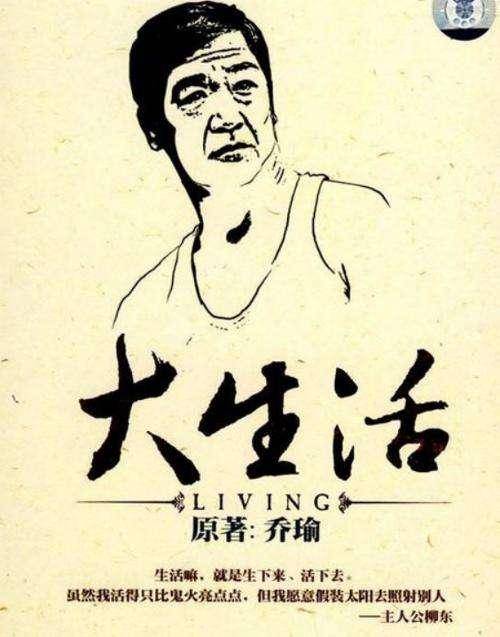 大生活
LIVING
原著：乔瑜
生活嘛，就是生下来、活下去。
虽然我活得只比鬼火亮点点，但我愿意假装太阳去照射别人
——主人公柳东